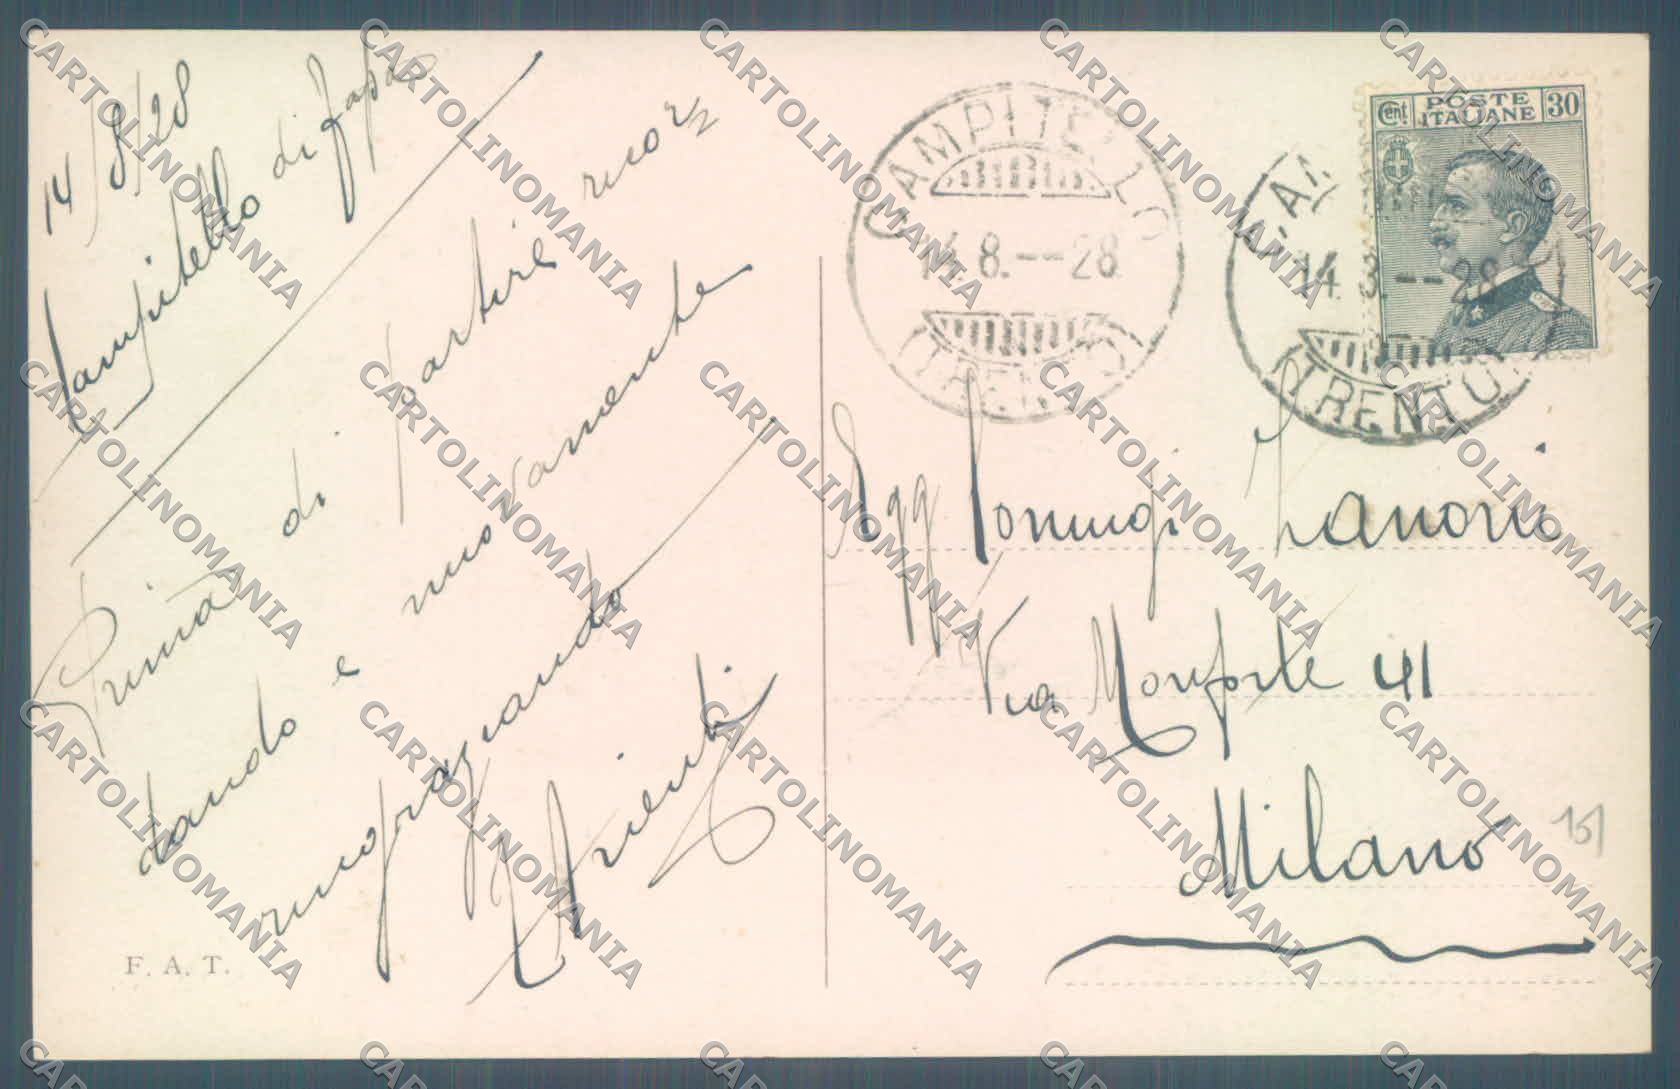 14/8/28
Campitello di Fassa
Prima di partire ricor
dando e nuovamente
ringraziando
F. A. T.
CAMPITELLO
14. 8. -- 28
(TRENTO)
14. 8. -- 28
(TRENTO)
Cent. POSTE ITALIANE 30
Famigi Zanoni
Via Monforte 41
Milano
151
CARTOLINOMANIA